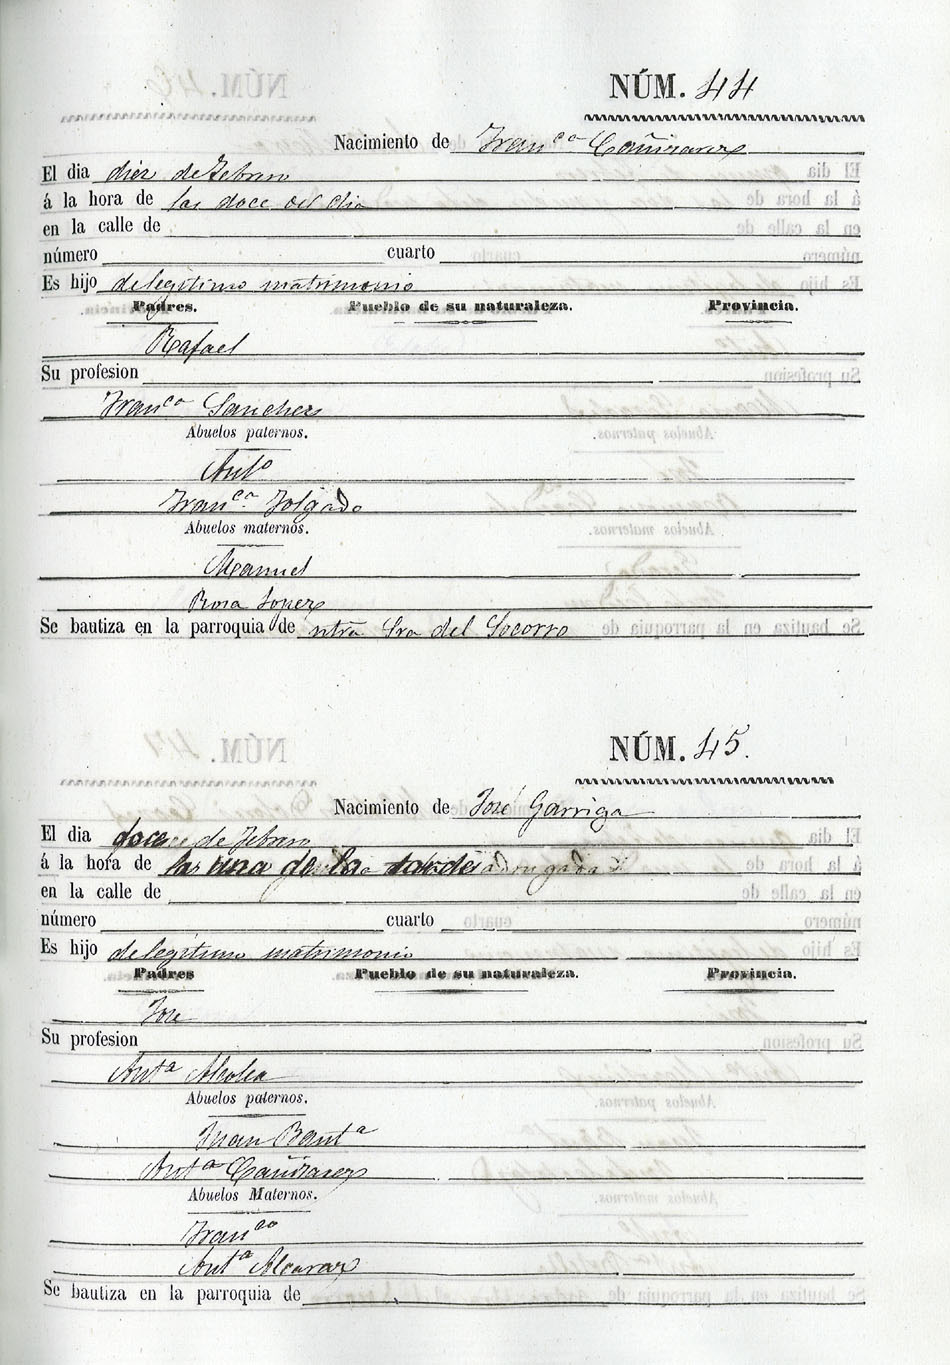 NÚM. 44
Nacimiento de Fran<sup>ca</sup> Cañizares
El dia diez de Febrero
á la hora de las doce del dia
en la calle de
número cuarto
Es hijo de legitimo matrimonio
Padres. Pueblo de su naturaleza. Provincia.
Rafael
Su profesion
Fran<sup>ca</sup> Sanchez
Abuelos paternos.
Ant<sup>o</sup>
Fran<sup>ca</sup> Folgado
Abuelos maternos.
Manuel
Rosa Lopez
Se bautiza en la parroquia de ntra Sra del Socorro
NÚM. 45.
Nacimiento de José Garriga
El dia doce de Febrero
á la hora de las una de la
en la calle de
número cuarto
Es hijo de legitimo matrimonio
Padres Pueblo de su naturaleza. Provincia.
Jose
Su profesion
Ant<sup>a</sup> Alcolea
Abuelos paternos.
Juan Baut<sup>a</sup>
Ant<sup>a</sup> Cañizares
Abuelos Maternos.
Fran<sup>co</sup>
Ant<sup>a</sup> Alcaraz
Se bautiza en la parroquia de